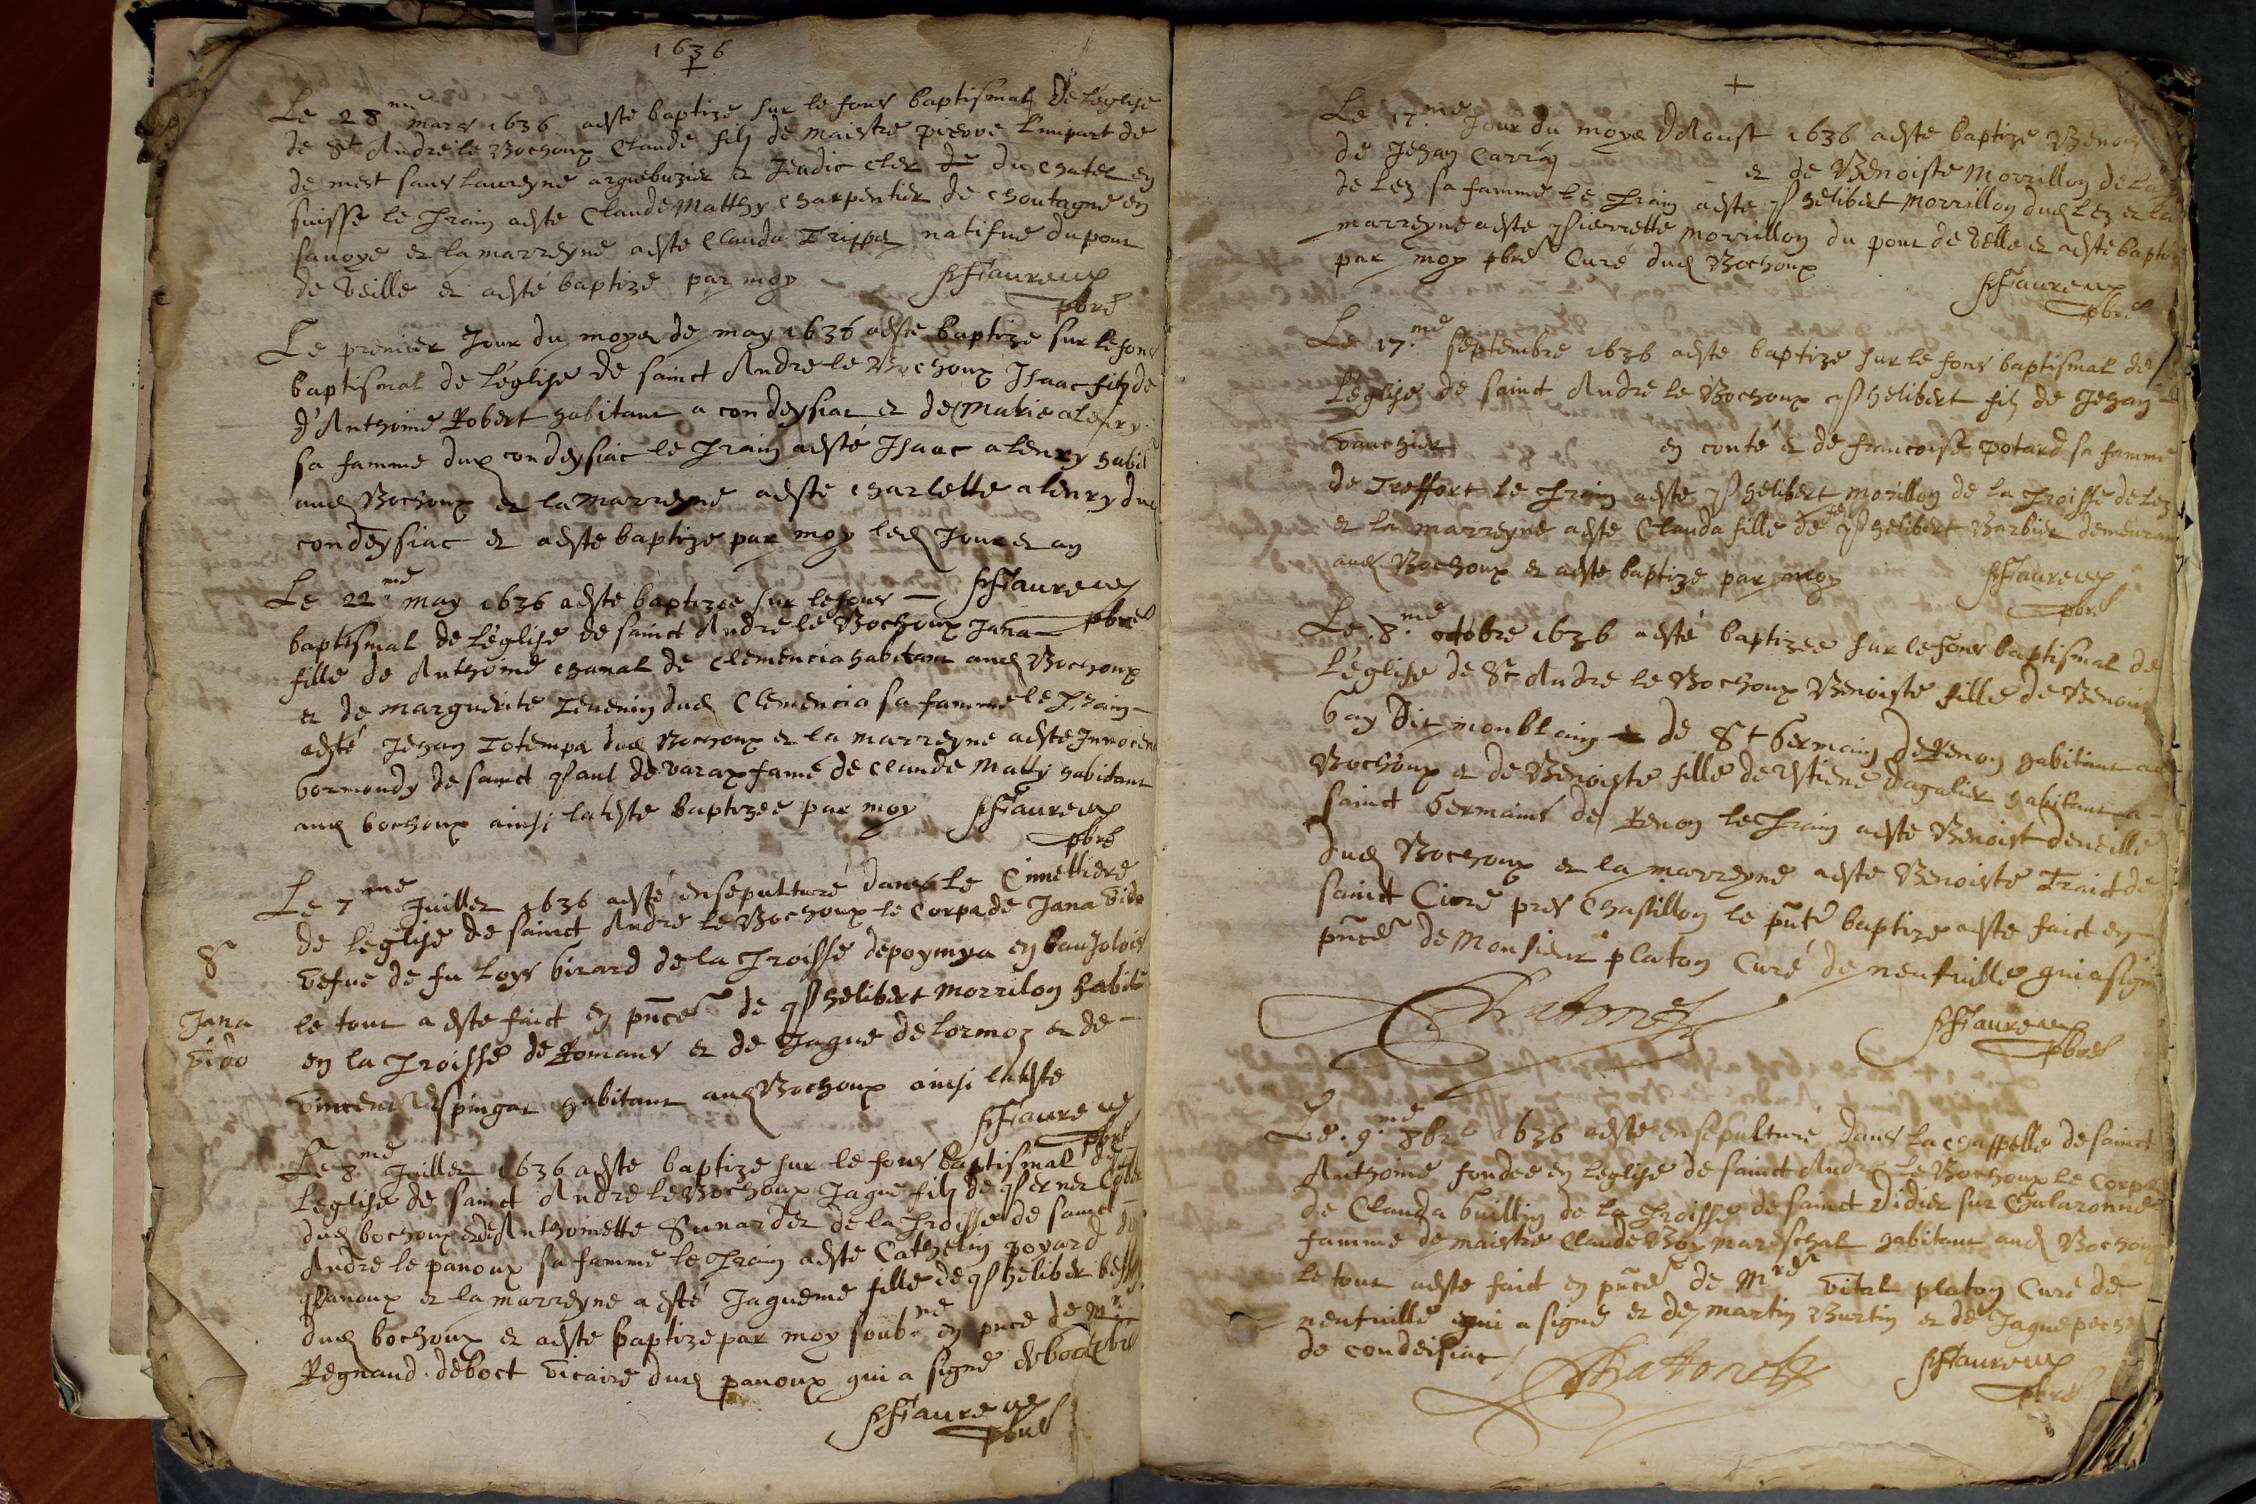 1636
Le 28me mars 1636 a esté baptizé sur le fons baptismal de l'église
de St Andre le Bochoux Claude filz de maistre pierre
de mest sans laureyne arquebuzier et du Chatel en
suisse le Prain a esté Claude Matthy Charpentier de Choutagne en
savoye et la marreyne a esté Clauda Trippe natifue du pont
de veille et a esté baptizé par moy
Faureux
pbre
Le premier Jour du moye de may 1636 a esté baptize sur le fons
baptismal de l'église de sainct Andre le Bochoux Isaac filz de
d'Anthoine Robert habitant a condeysiat et de Marie alenry
sa famme dud condeysiac le Prain a esté Isaac alenry habit
aud Bochoux et la marreyne a esté Charlette alenry dud
condeysiac et a esté baptize par moy led Jour et an
Faureux
pbre
Le 22me may 1636 a esté baptizée sur le fons
baptismal de l'église de sainct Andre le Bochoux Jana
fille de Anthoine Chanal de Clemencia habitant aud Bochoux
et de marguerite Tevenin dud Clemencia sa famme le Prain
a esté Jehan Totempe dud Bochoux et la marreyne a esté Innocen
Gormondy de sainct Paul de varax fame de claude Matty habitant
aud bochoux ainsi l'atéste baptizee par moy
Faureux
pbre
Le 7me Juillet 1636 a esté enseputturé dans le Cimettiere
de l'église de sainct Andre le Bochoux le Corps de Jana Vido
vefue de fu Loys Girard de la Proisse de poymya en baujolois
le tout a este faict en pnce de Phelibert Morrilon habit
en la Proisse de Romans et de Jaque de Lormoz et de
vincent espingat habitant aud Bochoux ainsi l'atéste
Faureux
pbre
S
Jana
Vido
Le 8me Juillet 1636 a esté baptize sur le fons baptismal de
l'église de sainct Andre le Bochoux Jaque filz de perner
dud bochoux et de Anthoinette Sunardet de la Proisse de sainct
Andre le panoux sa famme le Prain a esté Cathelin goyard
Panoux et la marreyne a esté Jaqueme fille de Pheliber
dud bochoux et a esté baptize par moy soub.né en pnce de Mre
Regnaud deboct vicaire dud panoux qui a signé deboct pbre
Faureux
pbre
Le 17me Jour du moye d'Aoust 1636 a esté baptize Benois
de Jehan Carry et de Benoiste Morrillon de la
de lez sa famme le Prain a esté Phelibert Morrillon dud lez et la
marreyne a esté Pierrette morrillon du pont de velle et a esté bapti
par moy pbre Curé dud Bochoux
Faureux
pbre
Le 17me septembre 1636 a esté baptize sur le fons baptismal de
l'église de sainct Andre le Bochoux Phelibert filz de Jehan
vauchier en conté et de francoise potard sa famme
de Treffort le Prain a esté Phelibert morillon de la Proisse de lez
et la marreyne a esté Clauda fille de feu Phelibert Barbier demeuran
aud Bochoux et a esté baptize par moy
Faureux
pbre
Le .8.me octobre 1636 a esté baptizee sur le fons baptismal de
l'église de St Andre le Bochoux Benoiste fille de Benoist
Gay dit monblain de St Germain de Renon habitant au
Bochoux et de Benoiste fille de estiene dagalier habitant a
sainct Germains de Renon le Prain a esté Benoist deveille
dud Bochoux et la marreyne a esté Benoiste Traict de
sainct Ciere pres Chastillon le pnte baptize a esté faict en
pnce de Monsieur platon Curé de neufville qui a signé
Platonet
Faureux
pbre
Le .9.me 8bre 1636 a esté enseputturé dans la chappelle de sainct
Anthoine fondee en l'église de sainct Andre le Bochoux le Corps
de Clauda Guillin de la Proisse de sainct Didier sur Chalaronne
famme de maistre Claude Boy mareschal habitant aud Bochoux
le tout a esté faict en pnce de Mre vital platon Curé de
neufville qui a signé et de martin Burtin et de Jaque
de condeisiac
Platonet
Faureux
pbre